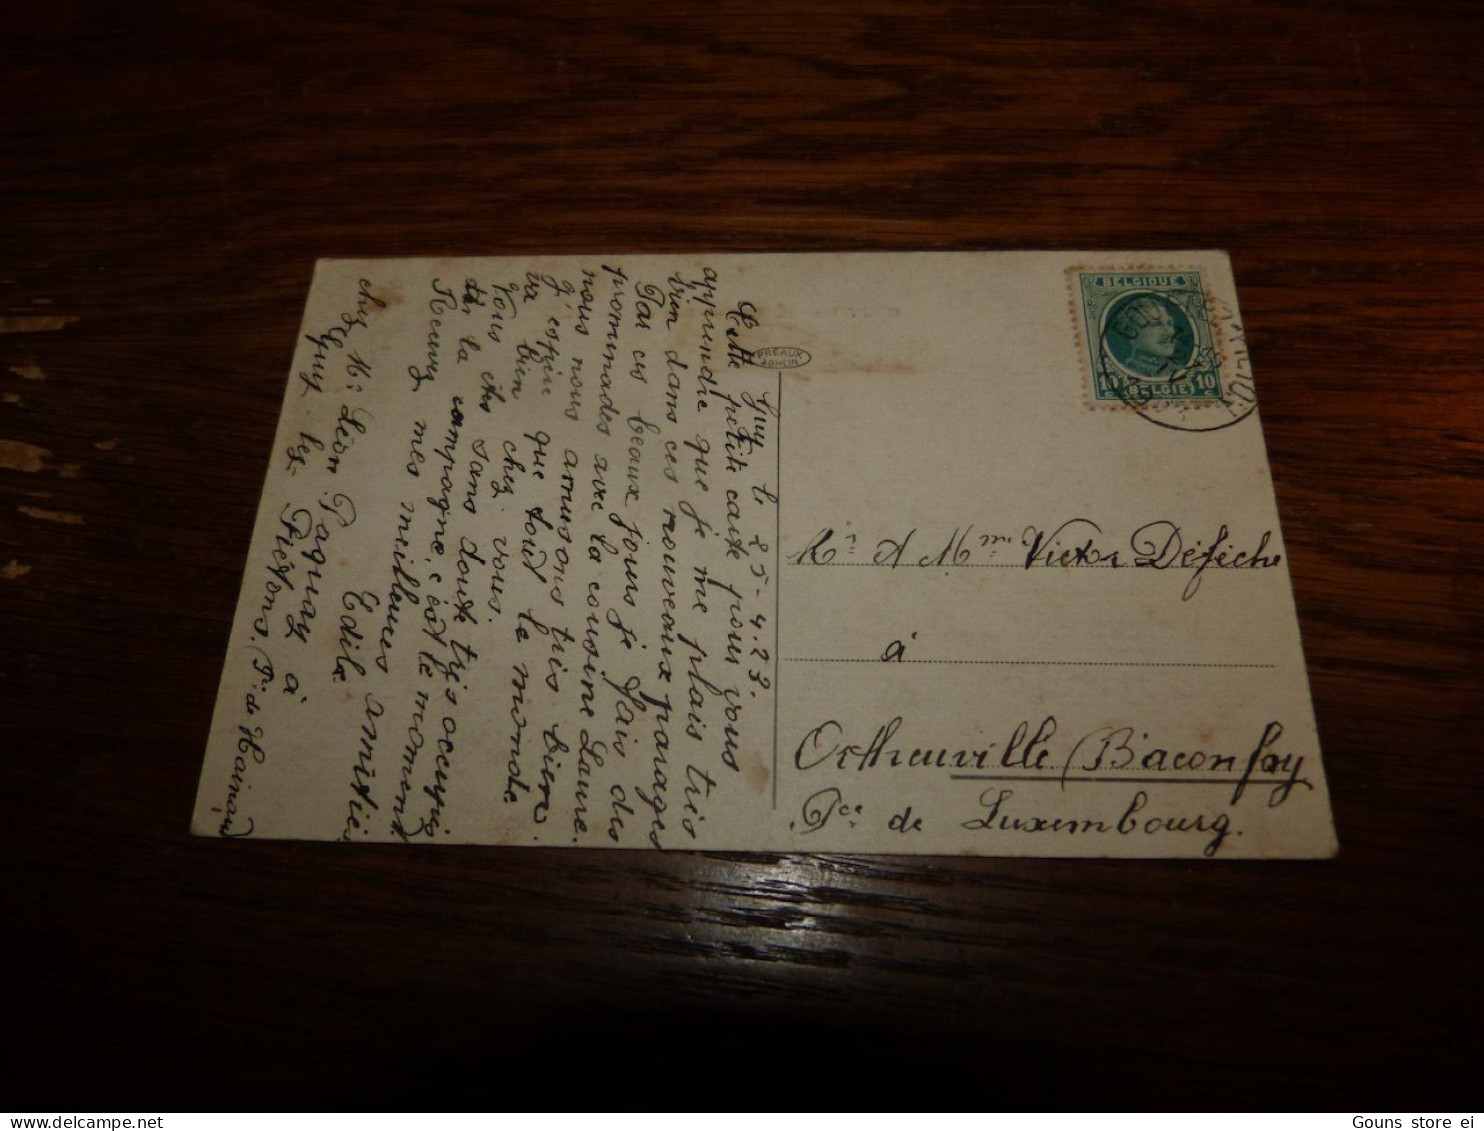 Guy le 25-4.23.
Cette petite carte pour vous
apprendre que je me plais très
bien dans ces nouveaux parages
Par ces beaux jours je fais des
prommades avec la cousine Laure.
nous nous amusons très bien.
J'espère que tout le monde
va bien chez vous.
Vous êtes sans doute très occupés
à la campagne, c'est le moment
Recevez mes meilleures amitiés
Edila
chez Mr Léon Paquay à
Guy lez Piétons. Pce de Hainaut
PREAUX
GHLIN
BELGIQUE
10 BELGIË 10
Mr & Mme Victor Deféche
à
Ortheuville (Baconfoy
Pce de Luxembourg.
Gouns store ei